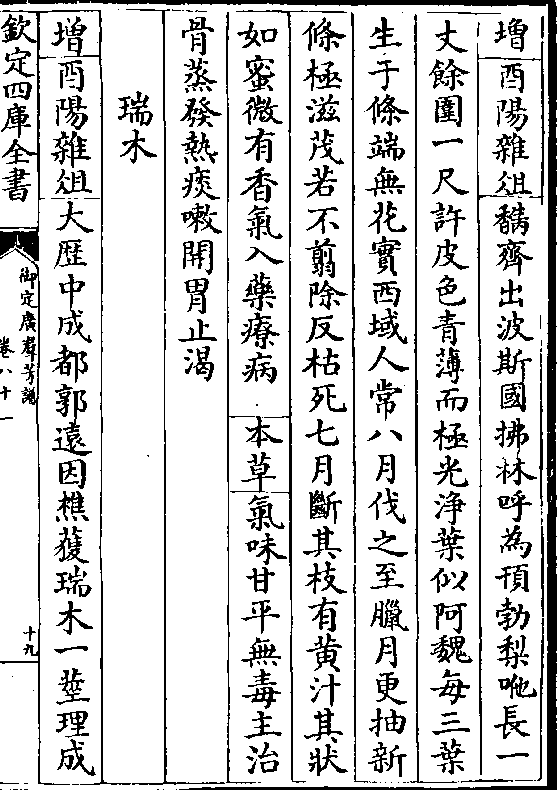 增酉陽雜俎𪏭齊出波斯國拂林呼為頇勃梨咃長一
丈餘圍一尺許皮色青薄而極光淨葉似阿魏每三葉
生于條端無花實西域人常八月伐之至臘月更抽新
條極滋茂若不翦除反枯死七月斷其枝有黄汁其狀
如蜜微有香氣入藥療病 本草氣味甘平無毒主治
骨蒸發熱痰嗽開胃止渴
瑞木
增酉陽雜俎大歴中成都郭遠因樵獲瑞木一莖理成
欽定四庫全書
御定廣羣芳譜
卷八十一
十九